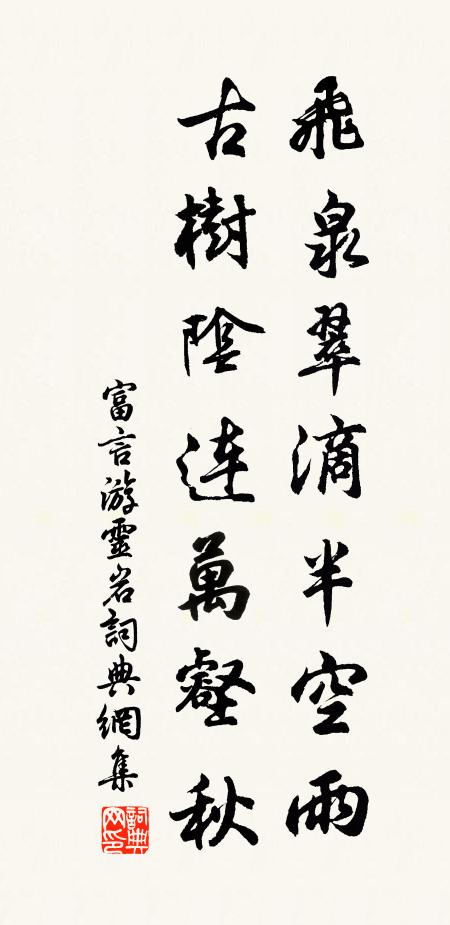 飛泉翠滴半空雨
古樹陰連萬壑秋
富言游靈岩詞典網集
詞典网印